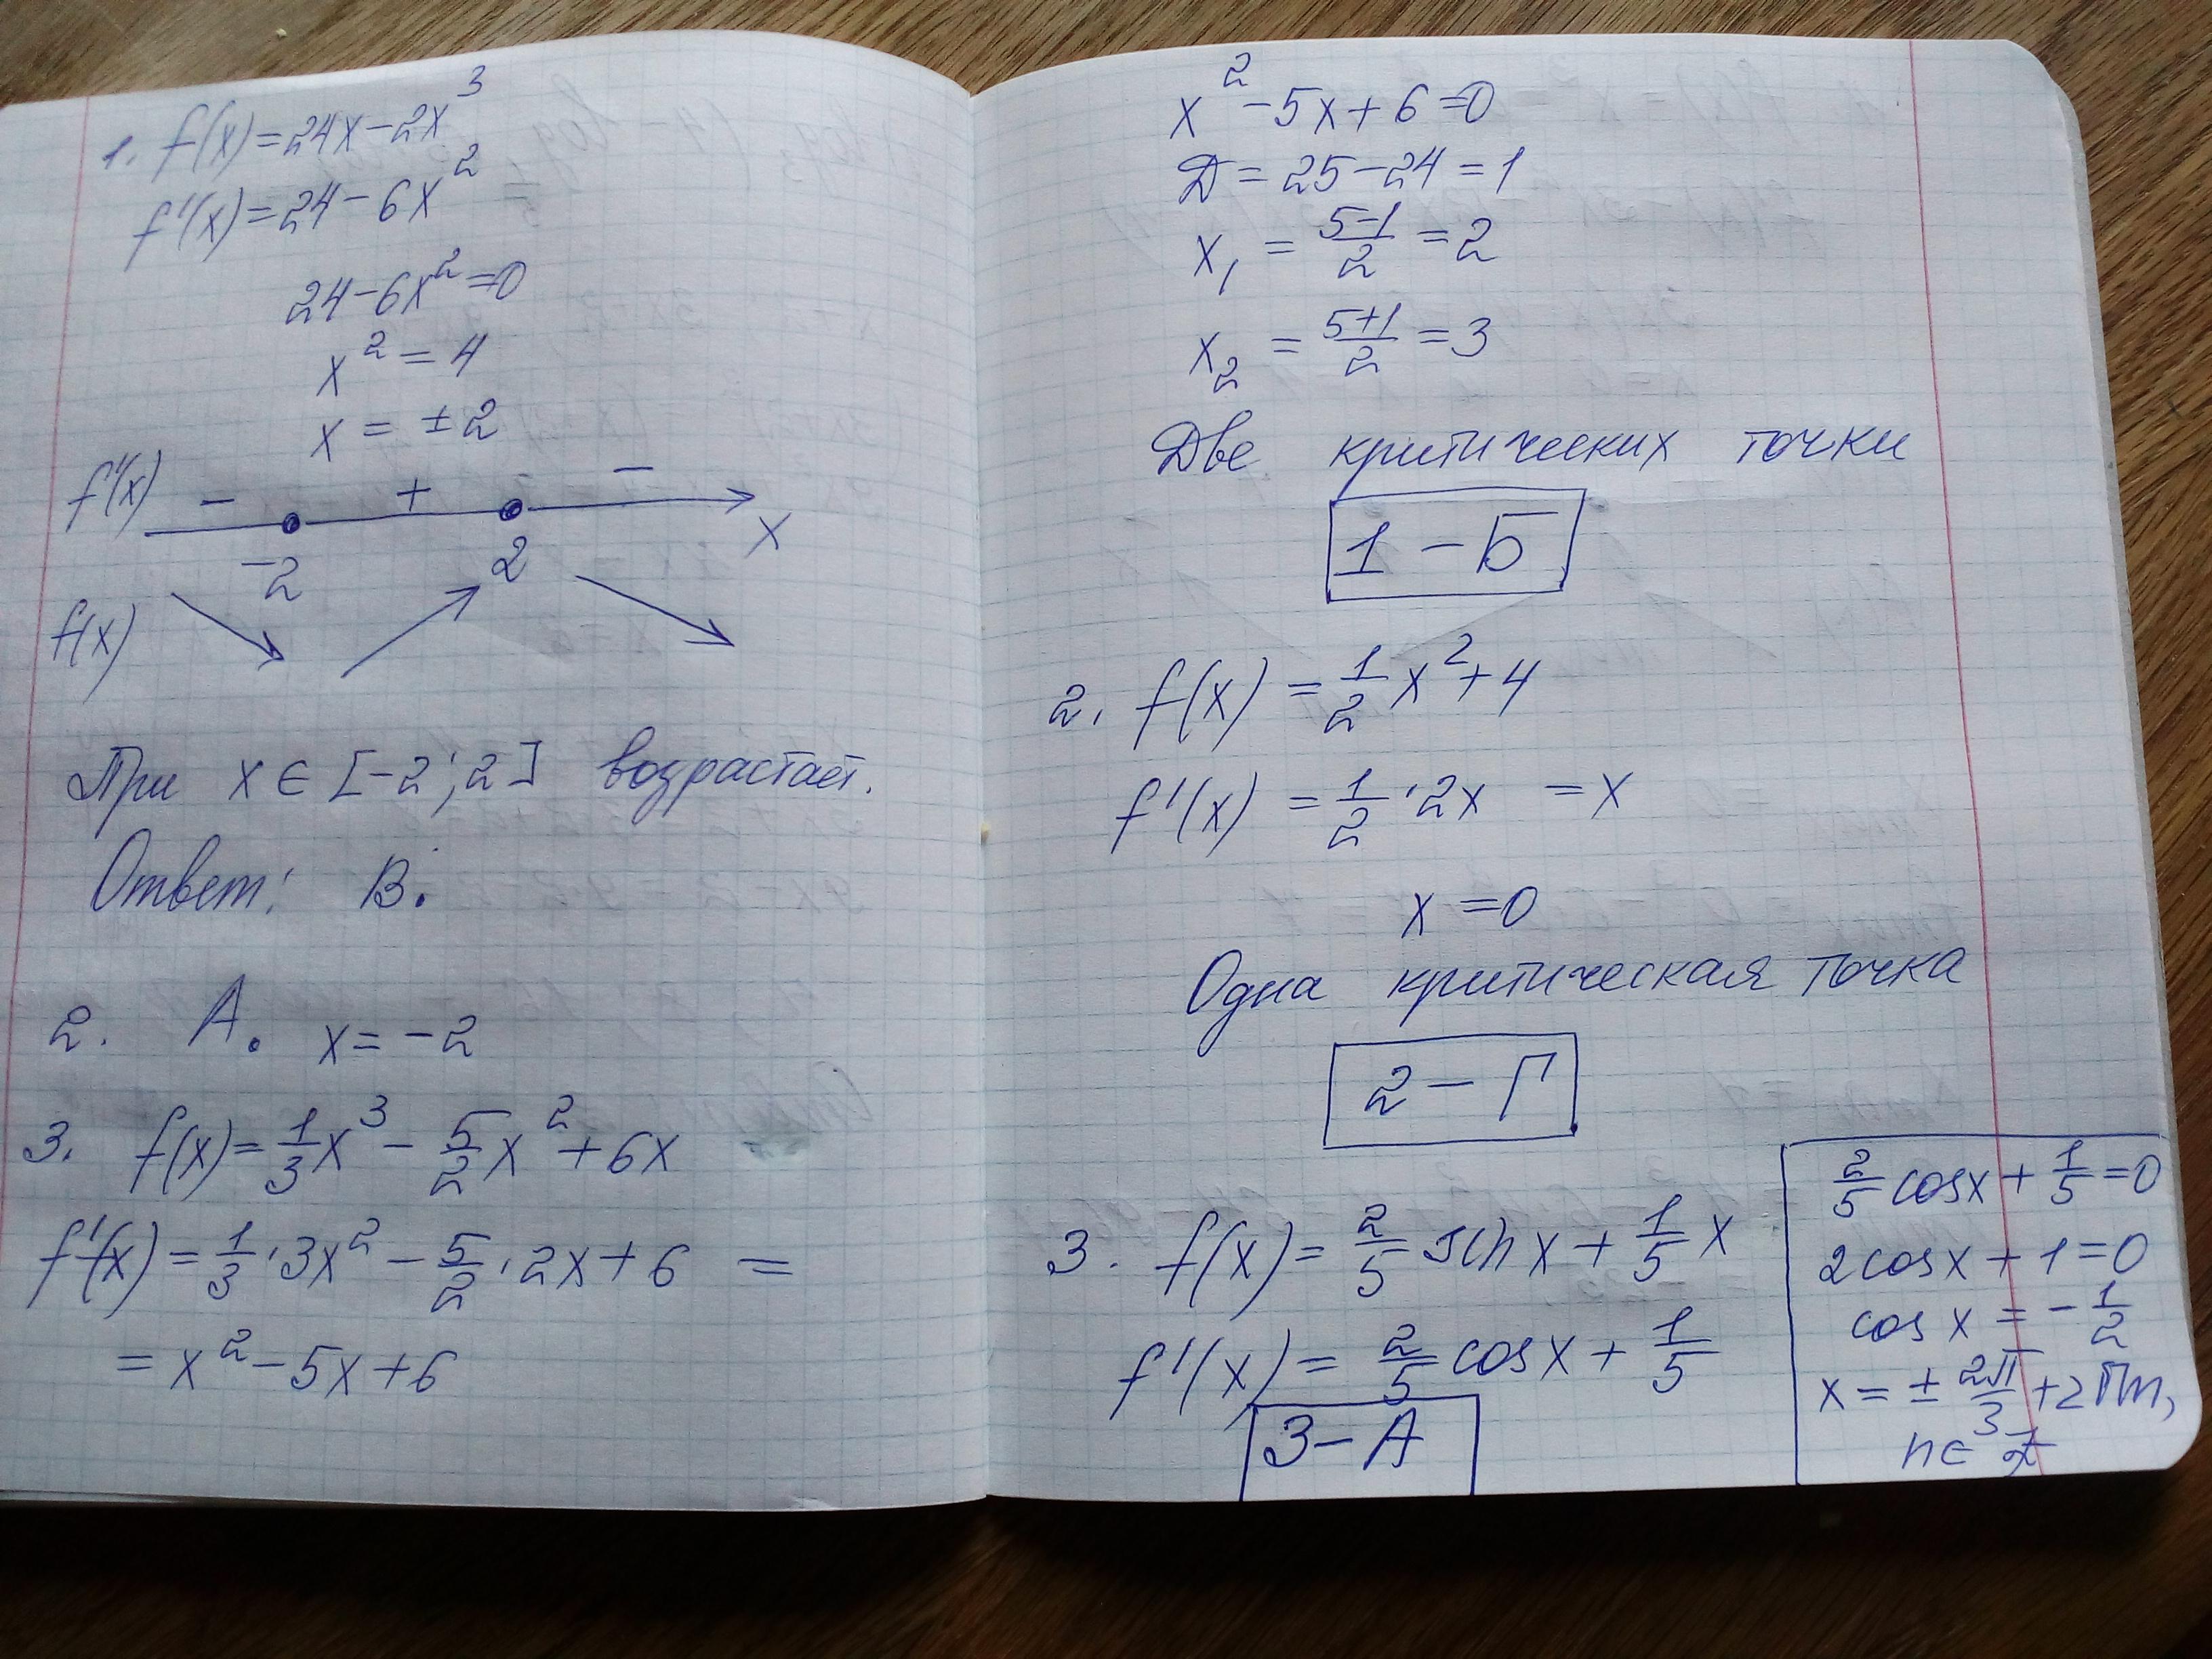 1. f(x)=24x-2x³
f'(x)=24-6x²
24-6x²=0
x²=4
x=±2
f'(x) - + -
-2 2 x
f(x)
При x∈[-2;2] возрастает.
Ответ: В.
2. А. x=-2
3. f(x)=1/3x³-5/2x²+6x
f'(x)=1/3·3x²-5/2·2x+6=
=x²-5x+6
x²-5x+6=0
Д=25-24=1
x₁=(5-1)/2=2
x₂=(5+1)/2=3
Две критических точки
1-Б
2. f(x)=1/2x²+4
f'(x)=1/2·2x=x
x=0
Одна критическая точка
2-Г
3. f(x)=2/5 sin x+1/5x
f'(x)=2/5 cosx+1/5
3-А
2/5 cosx+1/5=0
2cosx+1=0
cos x=-1/2
x=±2π/3+2πn,
n∈Z